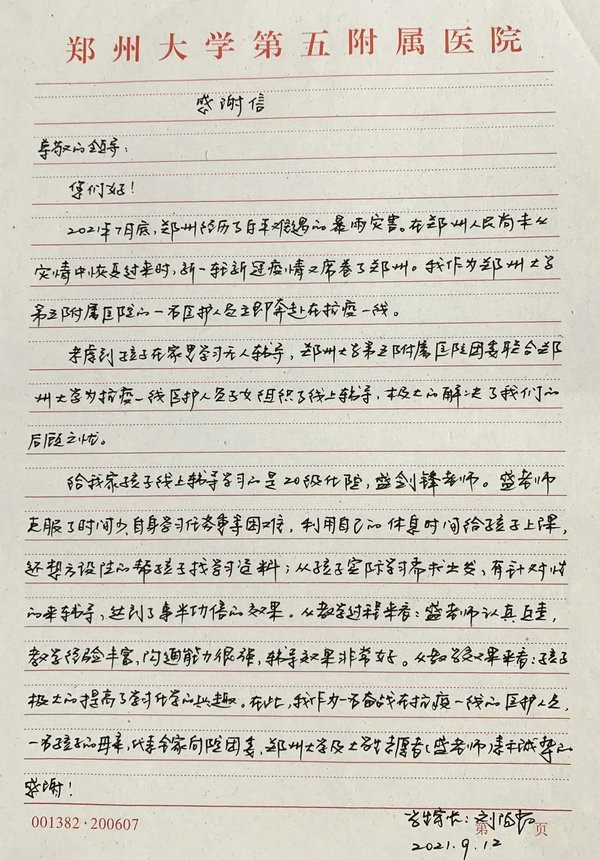 郑州大学第五附属医院
感谢信
尊敬的领导：
您们好！
2021年7月底，郑州经历了百年难遇的暴雨灾害。在郑州人民尚未从
灾情中恢复过来时，新一轮新冠疫情又席卷了郑州。我作为郑州大学
第五附属医院的一名医护人员立即奔赴在抗疫一线。
考虑到孩子在家里学习无人辅导，郑州大学第五附属医院团委联合郑
州大学为抗疫一线医护人员子女组织了线上辅导，极大的解决了我们的
后顾之忧。
给我家孩子线上辅导学习的是20级化院，盛剑锋老师。盛老师
克服了时间少，自身学习任务重等困难，利用自己的休息时间给孩子上课，
还想方设法的帮孩子找学习资料；从孩子实际学习需求出发，有针对性
的来辅导，达到了事半功倍的效果。从教学过程来看：盛老师认真负责，
教学经验丰富，沟通能力很强，辅导效果非常好。从教学效果来看：孩子
极大的提高了学习化学的兴趣。在此，我作为一名奋战在抗疫一线的医护人员，
一名孩子的母亲，代表全家向院团委、郑州大学及大学生志愿者（盛老师）表示诚挚的
感谢！
学生家长：刘
2021.9.12
001382·200607
第 页